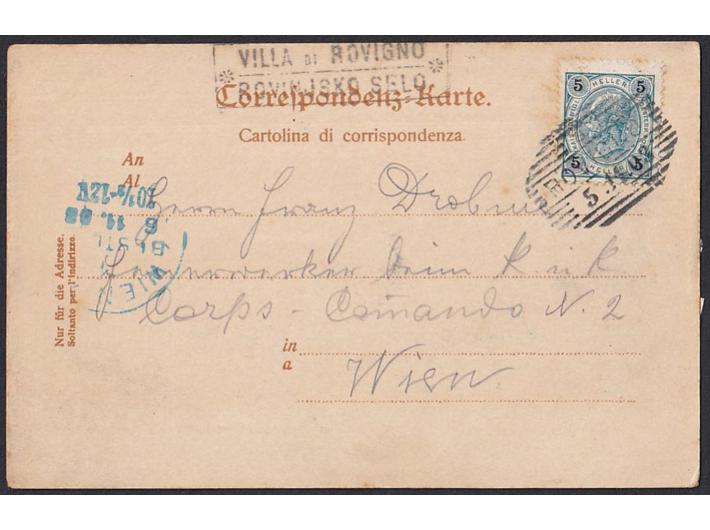 VILLA DI ROVIGNO
ROVINJSKO SELO
Correspondenz-Karte.
Cartolina di corrispondenza.
5 HELLER 5
5 HELLER 5
An
Al
Herrn Franz
beim k u k
Corps - Comando N. 2
in
a
Wien
Nur für die Adresse.
Soltanto per l'indirizzo.
WIEN
BESTELLT
6 11. 03
10½-12V